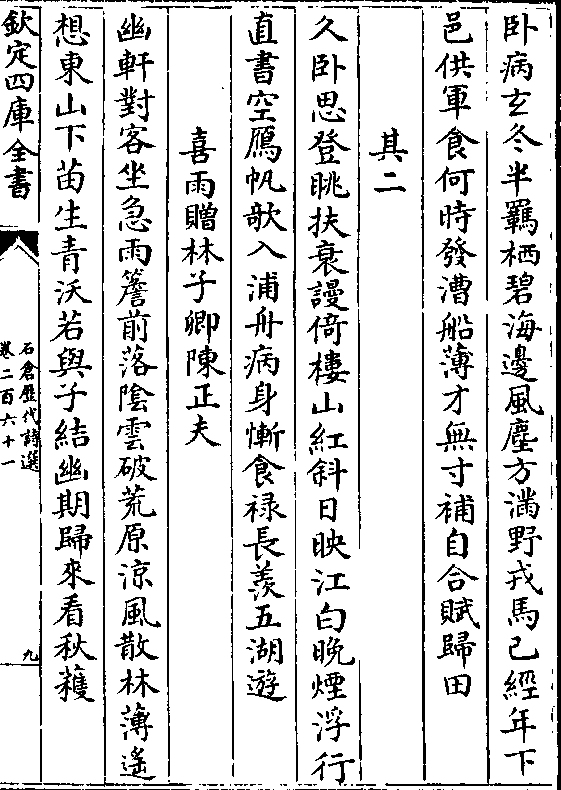 卧病玄冬半羈栖碧海邊風塵方滿野戎馬已經年下
邑供軍食何時發漕船薄才無寸補自合賦歸田
其二
久卧思登眺扶衰謾倚樓山紅斜日映江白晚煙浮行
直書空鴈帆歌入浦舟病身慚食禄長羨五湖遊
喜雨贈林子卿陳正夫
幽軒對客坐急雨簷前落陰雲破荒原涼風散林薄遙
想東山下苗生青沃若與子結幽期歸來看秋穫
欽定四庫全書
石倉歷代詩選
卷二百六十一
九